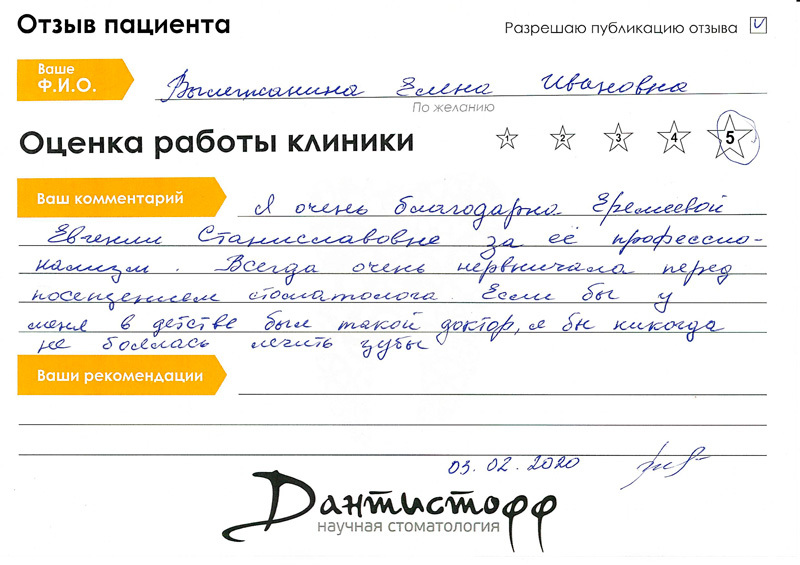 Отзыв пациента
Разрешаю публикацию отзыва
Ваше
Ф.И.О.
Вылегжанина Елена Ивановна
По желанию
Оценка работы клиники
1 2 3 4 5
Ваш комментарий
Я очень благодарна Еремеевой
Евгении Станиславовне за её профессио-
нализм. Всегда очень нервничала перед
посещением стоматолога. Если бы у
меня в детстве был такой доктор, я бы никогда
не боялась лечить зубы
Ваши рекомендации
03.02.2020
Дантистофф
научная стоматология